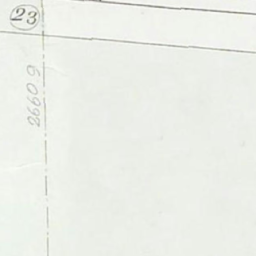 23
26609